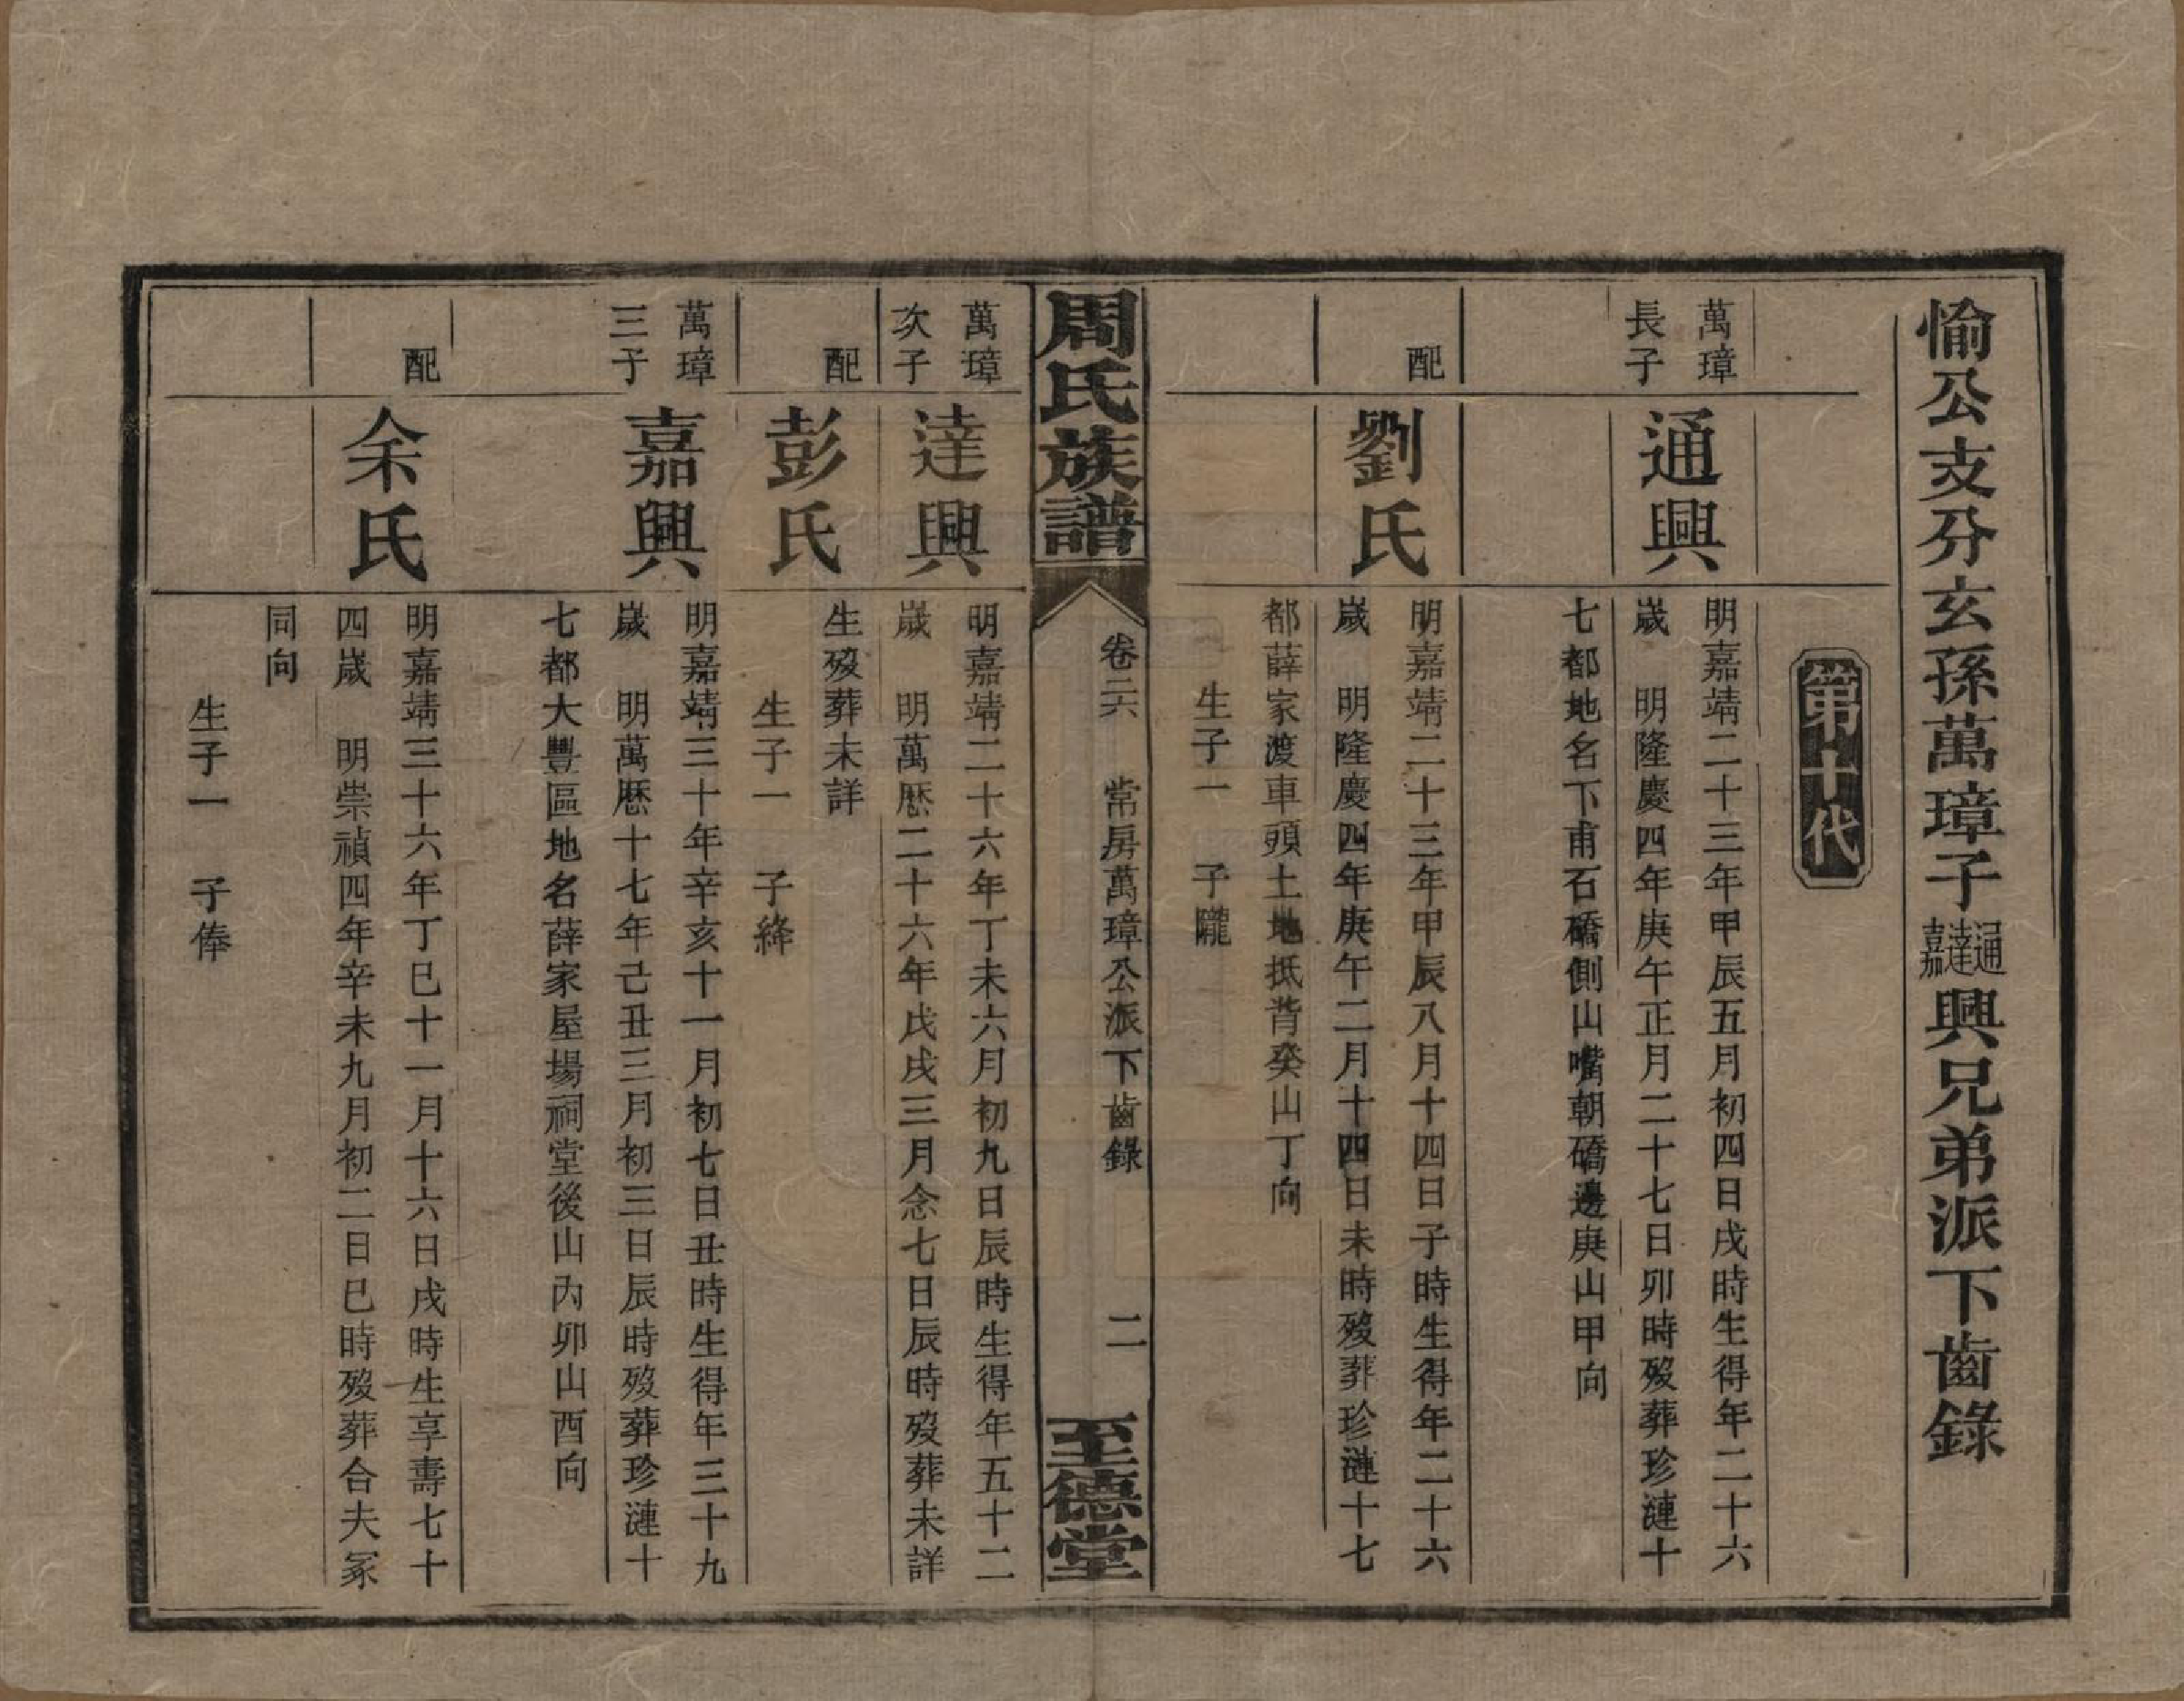 愉公支分玄孫萬璋子通達嘉興兄弟派下齒錄
第十代
萬璋
長子
通興
明嘉靖二十三年甲辰五月初四日戌時生得年二十六
歲　明隆慶四年庚午正月二十七日卯時歿葬珍漣十
七都地名下甫石礄側山嘴朝礄邊庚山甲向
配
劉氏
明嘉靖二十三年甲辰八月十四日子時生得年二十六
歲　明隆慶四年庚午二月十四日未時歿葬珍漣十七
都薛家渡車頭土地抵背癸山丁向
生子一　子隴
周氏族譜
卷二六　常房萬璋公派下齒錄　二
至德堂
萬璋
次子
達興
明嘉靖二十六年丁未六月初九日辰時生得年五十二
歲　明萬厯二十六年戊戌三月念七日辰時歿葬未詳
配
彭氏
生歿葬未詳
生子一　子絳
萬璋
三子
嘉興
明嘉靖三十年辛亥十一月初七日丑時生得年三十九
歲　明萬厯十七年己丑三月初三日辰時歿葬珍漣十
七都大豐區地名薛家屋場祠堂後山內卯山酉向
配
余氏
明嘉靖三十六年丁巳十一月十六日戌時生享壽七十
四歲　明崇禎四年辛未九月初二日巳時歿葬合夫冢
同向
生子一　子俸